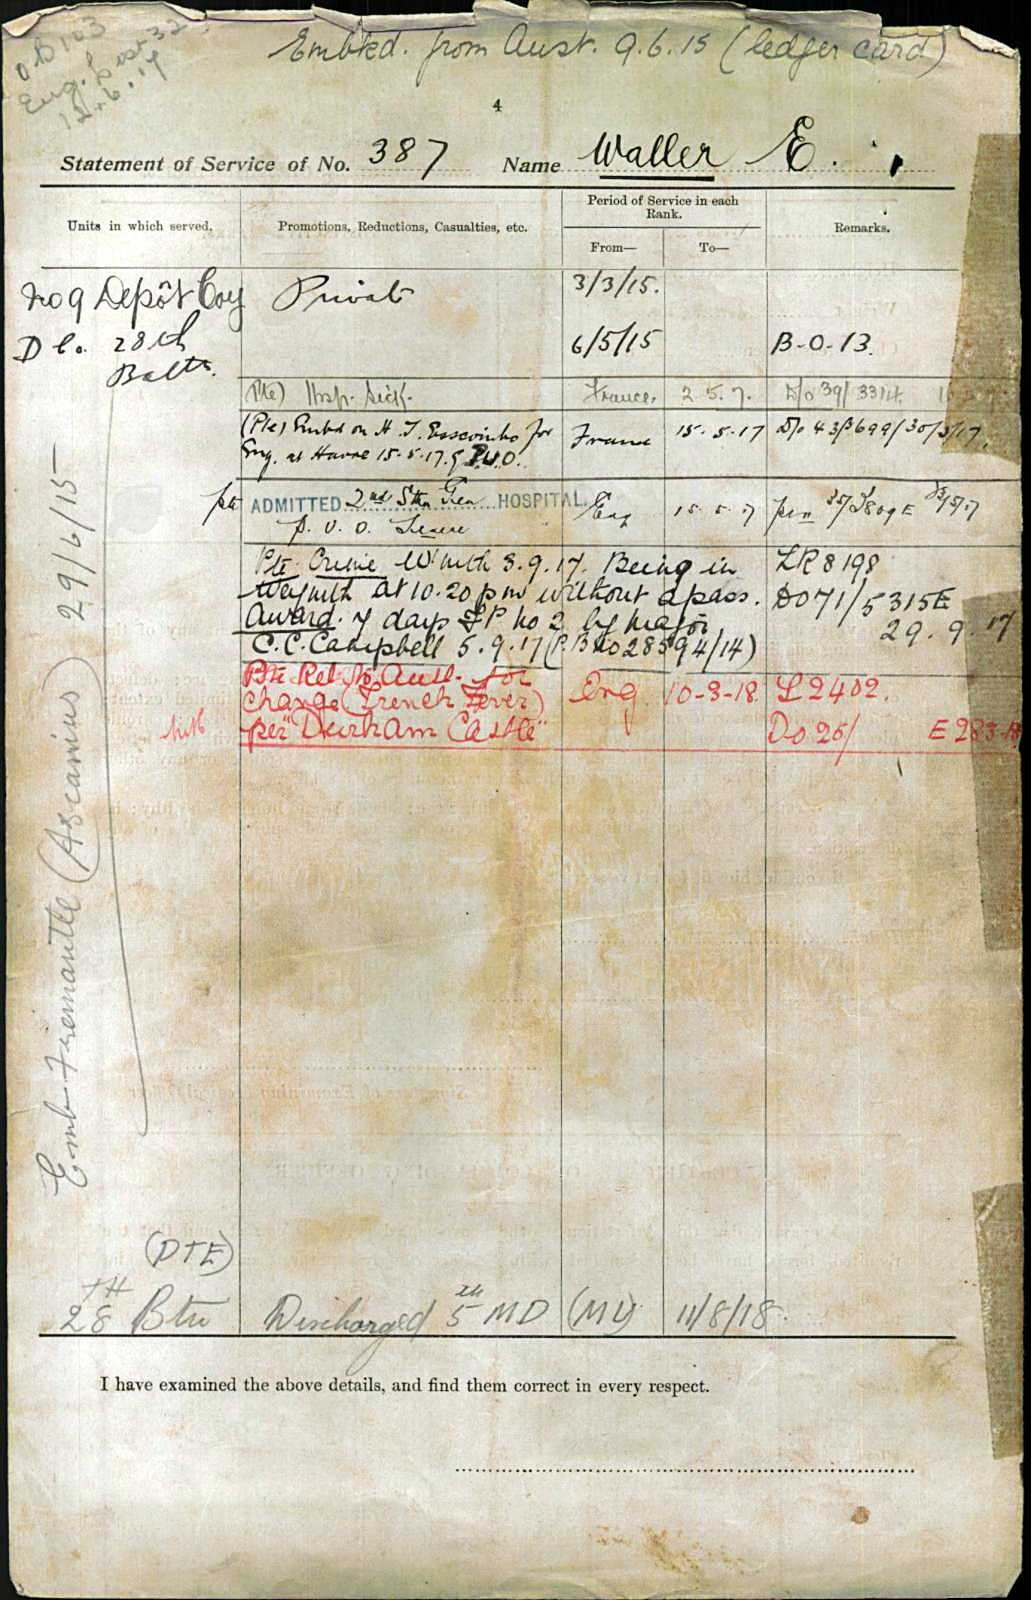 OB 103
Eng. L
12.6.17
Embkd. from Aust. 9.6.15 (ledger card)
4
Statement of Service of No. 387 Name Waller E.
Units in which served. Promotions, Reductions, Casualties, etc. Period of Service in each Rank. Remarks.
From— To—
No 9 Depôt Coy Private 3/3/15.
D Co. 28th 6/5/15 B-O-13.
Battn.
Pte) Hosp. Sick. France. 2.5.7. D/o 39/
(Pte) Embd on H.S. for France 15.5.17
Eng. at Havre 15.5.17. P.U.O.
pte ADMITTED 2nd Sthn Gen HOSPITAL. Eng 15.5.7
P.U.O. Severe
Pte. Crime W'mth 3.9.17. Being in LR 8198
Weymth at 10.20 pm without a pass. DO71/5315E
Award. 7 days FP no 2 by Major 29.9.17
C.C. Campbell 5.9.17 (P.B no 28594/14)
Pte Ret. to Aust. for
change (Trench Fever) Eng 10-3-18. L2402.
per "Durham Castle" Do 25/
Emb Fremantle (Ascanius) 29/6/15
(PTE)
28TH Btn Discharged 5th MD (MU) 11/8/18.
I have examined the above details, and find them correct in every respect.